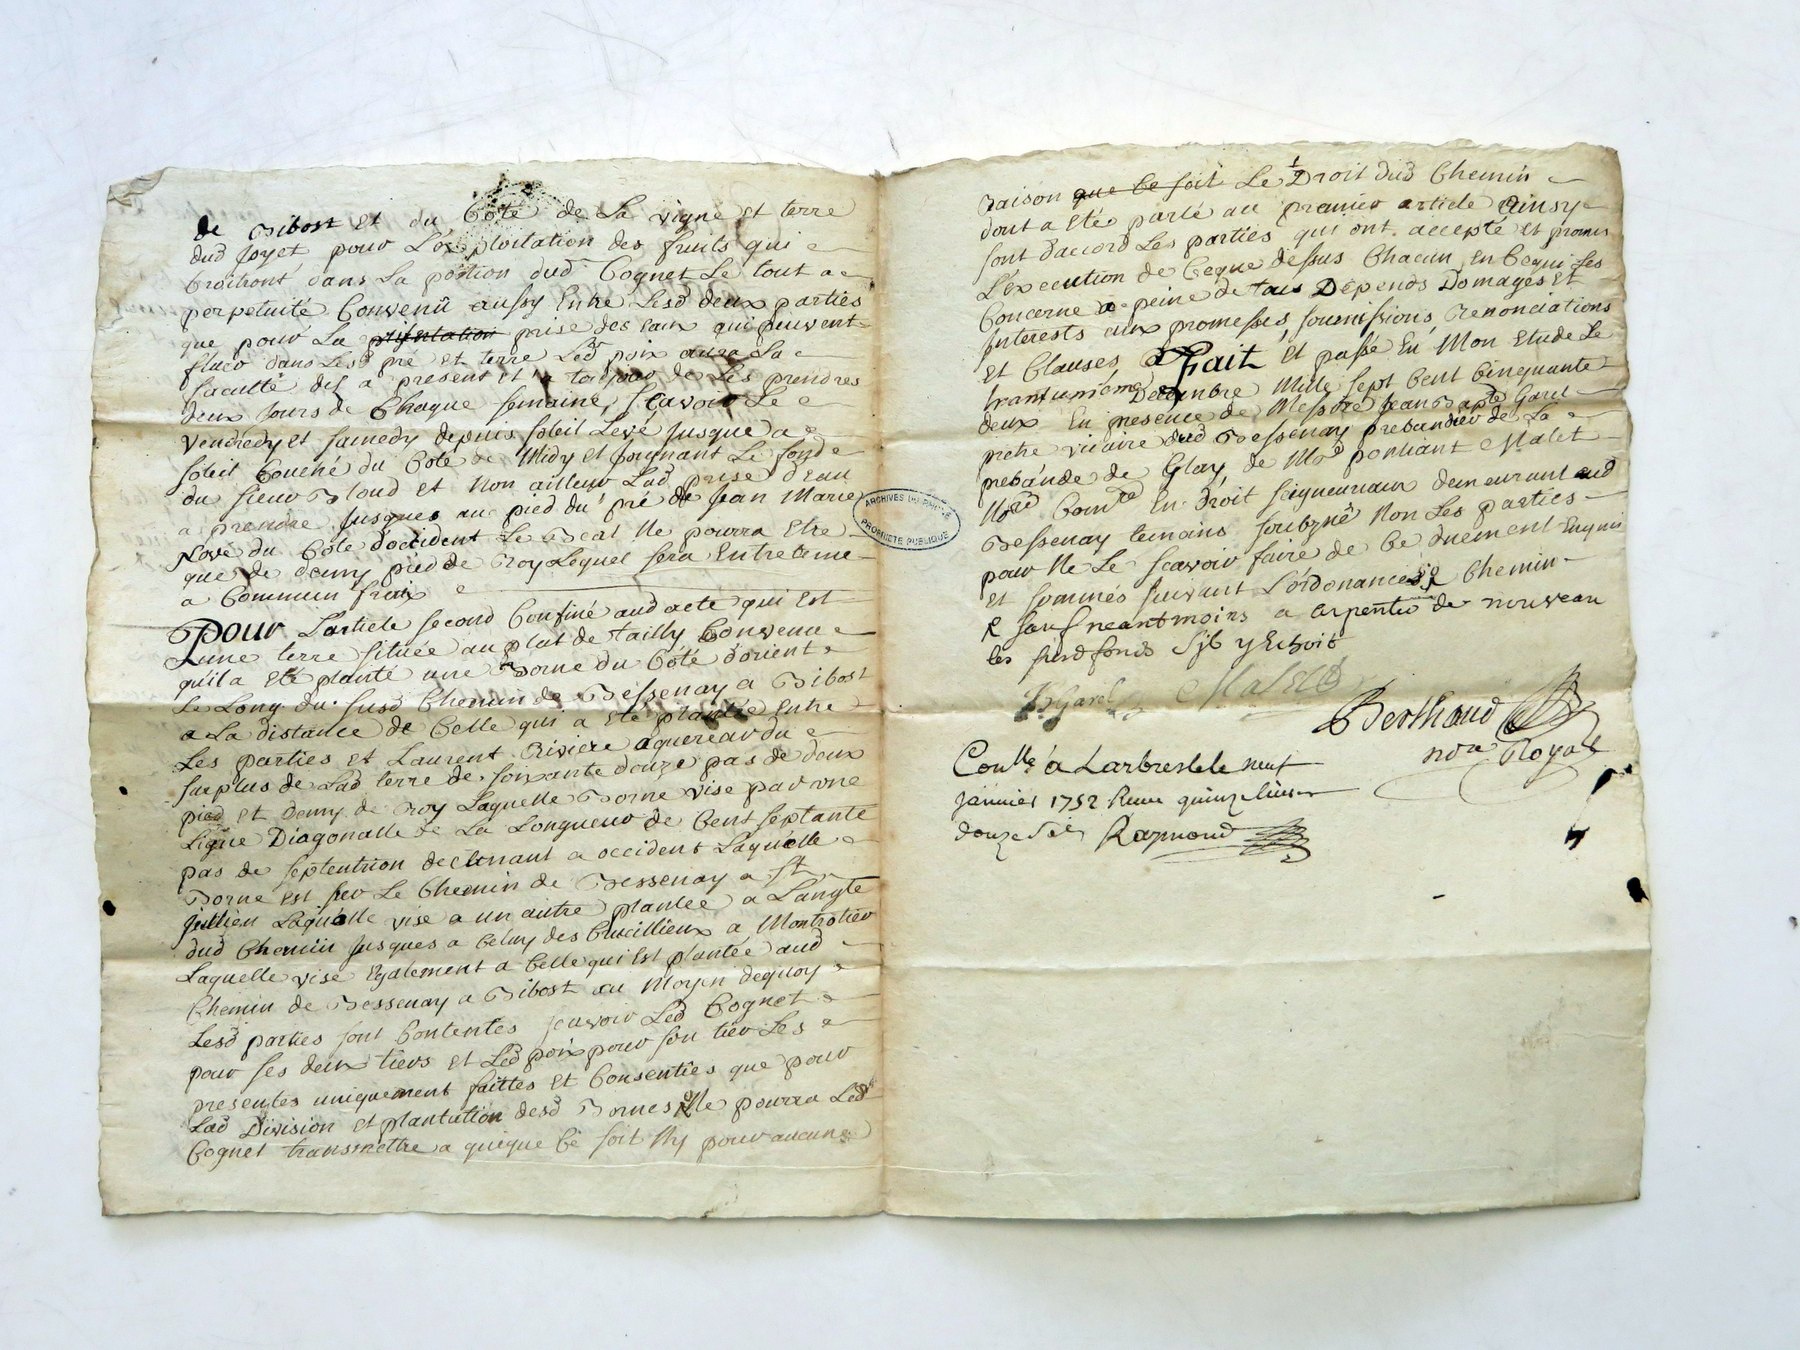 de Bibost et du Coté de La vigne et terre
dud Joyet pour L'éxploitation des fruits qui
Croitront dans La portion dud Cognet Le tout a
perpetuité Convenû aussy Entre Lesd deux parties
que pour La prise des eaux qui peuvent
fluer dans Lesd pré et terre Led poix aura La
faculté des a present et a toujour de Les prendres
deux Jours de Chaque semaine, sçavoir Le
Vendredy et samedy depuis soleil Levé Jusque a
soleil Couché du Coté de Midy et Joignant Le fond
du sieur Bloud et Non ailleur Lad prise d'eau
a prendre Jusques au pied du pré de Jean Marie
Nové du Coté d'occident Le Beal Ne pourra Etre
que de demy pied de Roy Lequel sera Entretenu
a Commun fraix
Pour L'article second Confiné aud acte qui Est
d'une terre située au plat de Tailly Convenu
qu'il a eté planté une Borne du Coté d'orient
Le Long du susd Chemin de Bessenay a Bibost
a La distance de Celle qui a eté plantée Entre
Les parties et Laurent Riviere aquereur du
surplus de Lad terre de soixante douze pas de deux
pied et demy de Roy Laquelle Borne vise par une
Ligne Diagonalle de La Longueur de Cent septante
pas de septentrion declinant a occident Laquelle
Borne est sur Le Chemin de Bessenay a St
Jullien Laquelle vise a un autre plantée a Langle
dud Chemin Jusques a Celuy des Cruzillieux a Montrotier
Laquelle vise Egalement a Celle qui Est plantée aud
Chemin de Bessenay a Bibost au Moyen dequoy
Lesd parties sont Contentes sçavoir Led Cognet
pour ses deux tiers et Led poix pour son tier Les
presentes uniquement faittes et Consenties que pour
Lad Division et plantation desd Bornes Ne pourra Led
Cognet transmettre a quique Ce soit Ny pour aucune
ARCHIVES DU RHÔNE
PROPRIETE PUBLIQUE
Raison que Ce soit Le Droit dud Chemin
dont a Eté parlé au premier article Ainsy
sont d'accord Les parties qui ont accepté et promis
L'éxecution de Ceque dessus Chacun En Cequi Les
Concerne a peine de tous Dépends Domages Et
Interests aux promesses, soumissions Renonciations
et Clauses, Fait Et passé En Mon Etude Le
trantunième Decembre Mille sept Cent Cinquante
deux En presence de Messire Jean Bapte Garel
pretre vicaire dud Bessenay prebandier de La
prebande de Glay, de Mre ponliant Malet
Nore Comre En Droit seigneuriaux demeurant aud
Bessenay temoins soubzné Non Les parties
pour Ne Le scavoir faire de Ce Duement Enquis
et sommés suivant L'ordonance Chemin
sauf neantmoins a arpenter de nouveau
les susd fonds s'il y Echoit
Garel Malet
Berthaud
nore Royale
Conllé a Larbresle le neuf
Janvier 1752 Receu quinze livres
douze sols Raymond